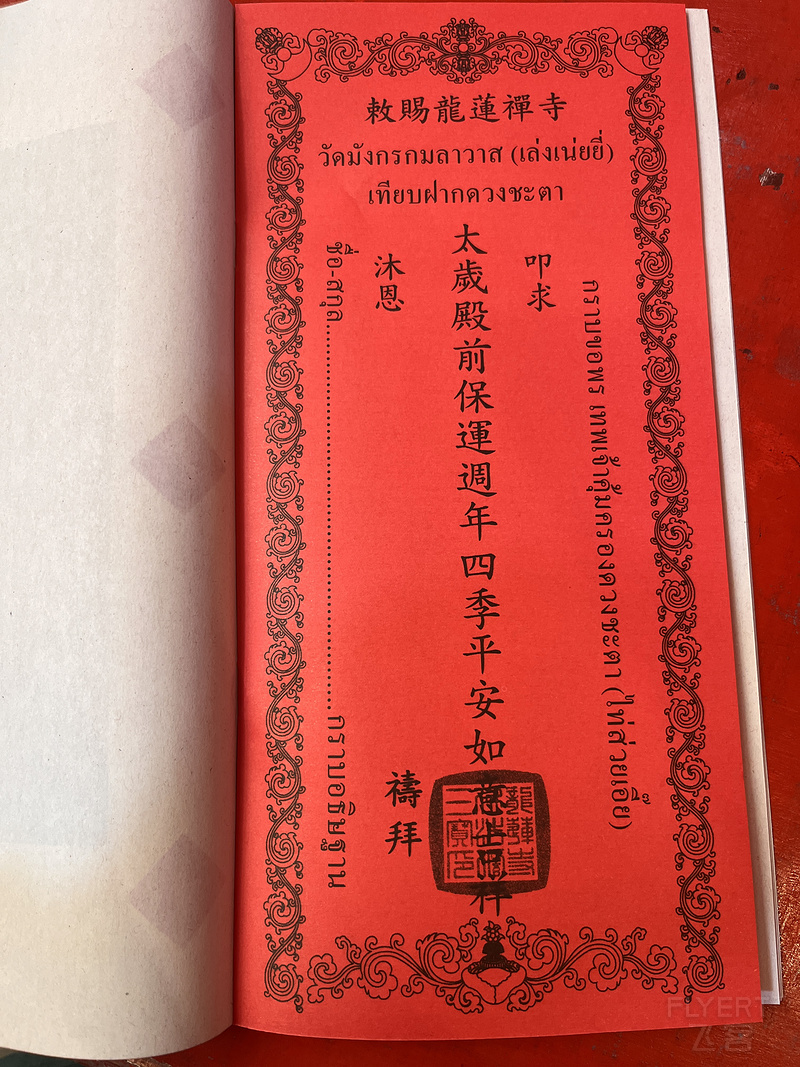 敕賜龍蓮禪寺
วัดมังกรกมลาวาส (เล่งเน่ยยี่)
เทียบฝากดวงชะตา
กราบขอพร เทพเจ้าคุ้มครองดวงชะตา (ไท่ส่วยเอี๊ย)
叩求
太歲殿前保運週年四季平安如意吉祥
沐恩
禱拜
ชื่อ-สกุล........................................กราบอธิษฐาน
FLYERT